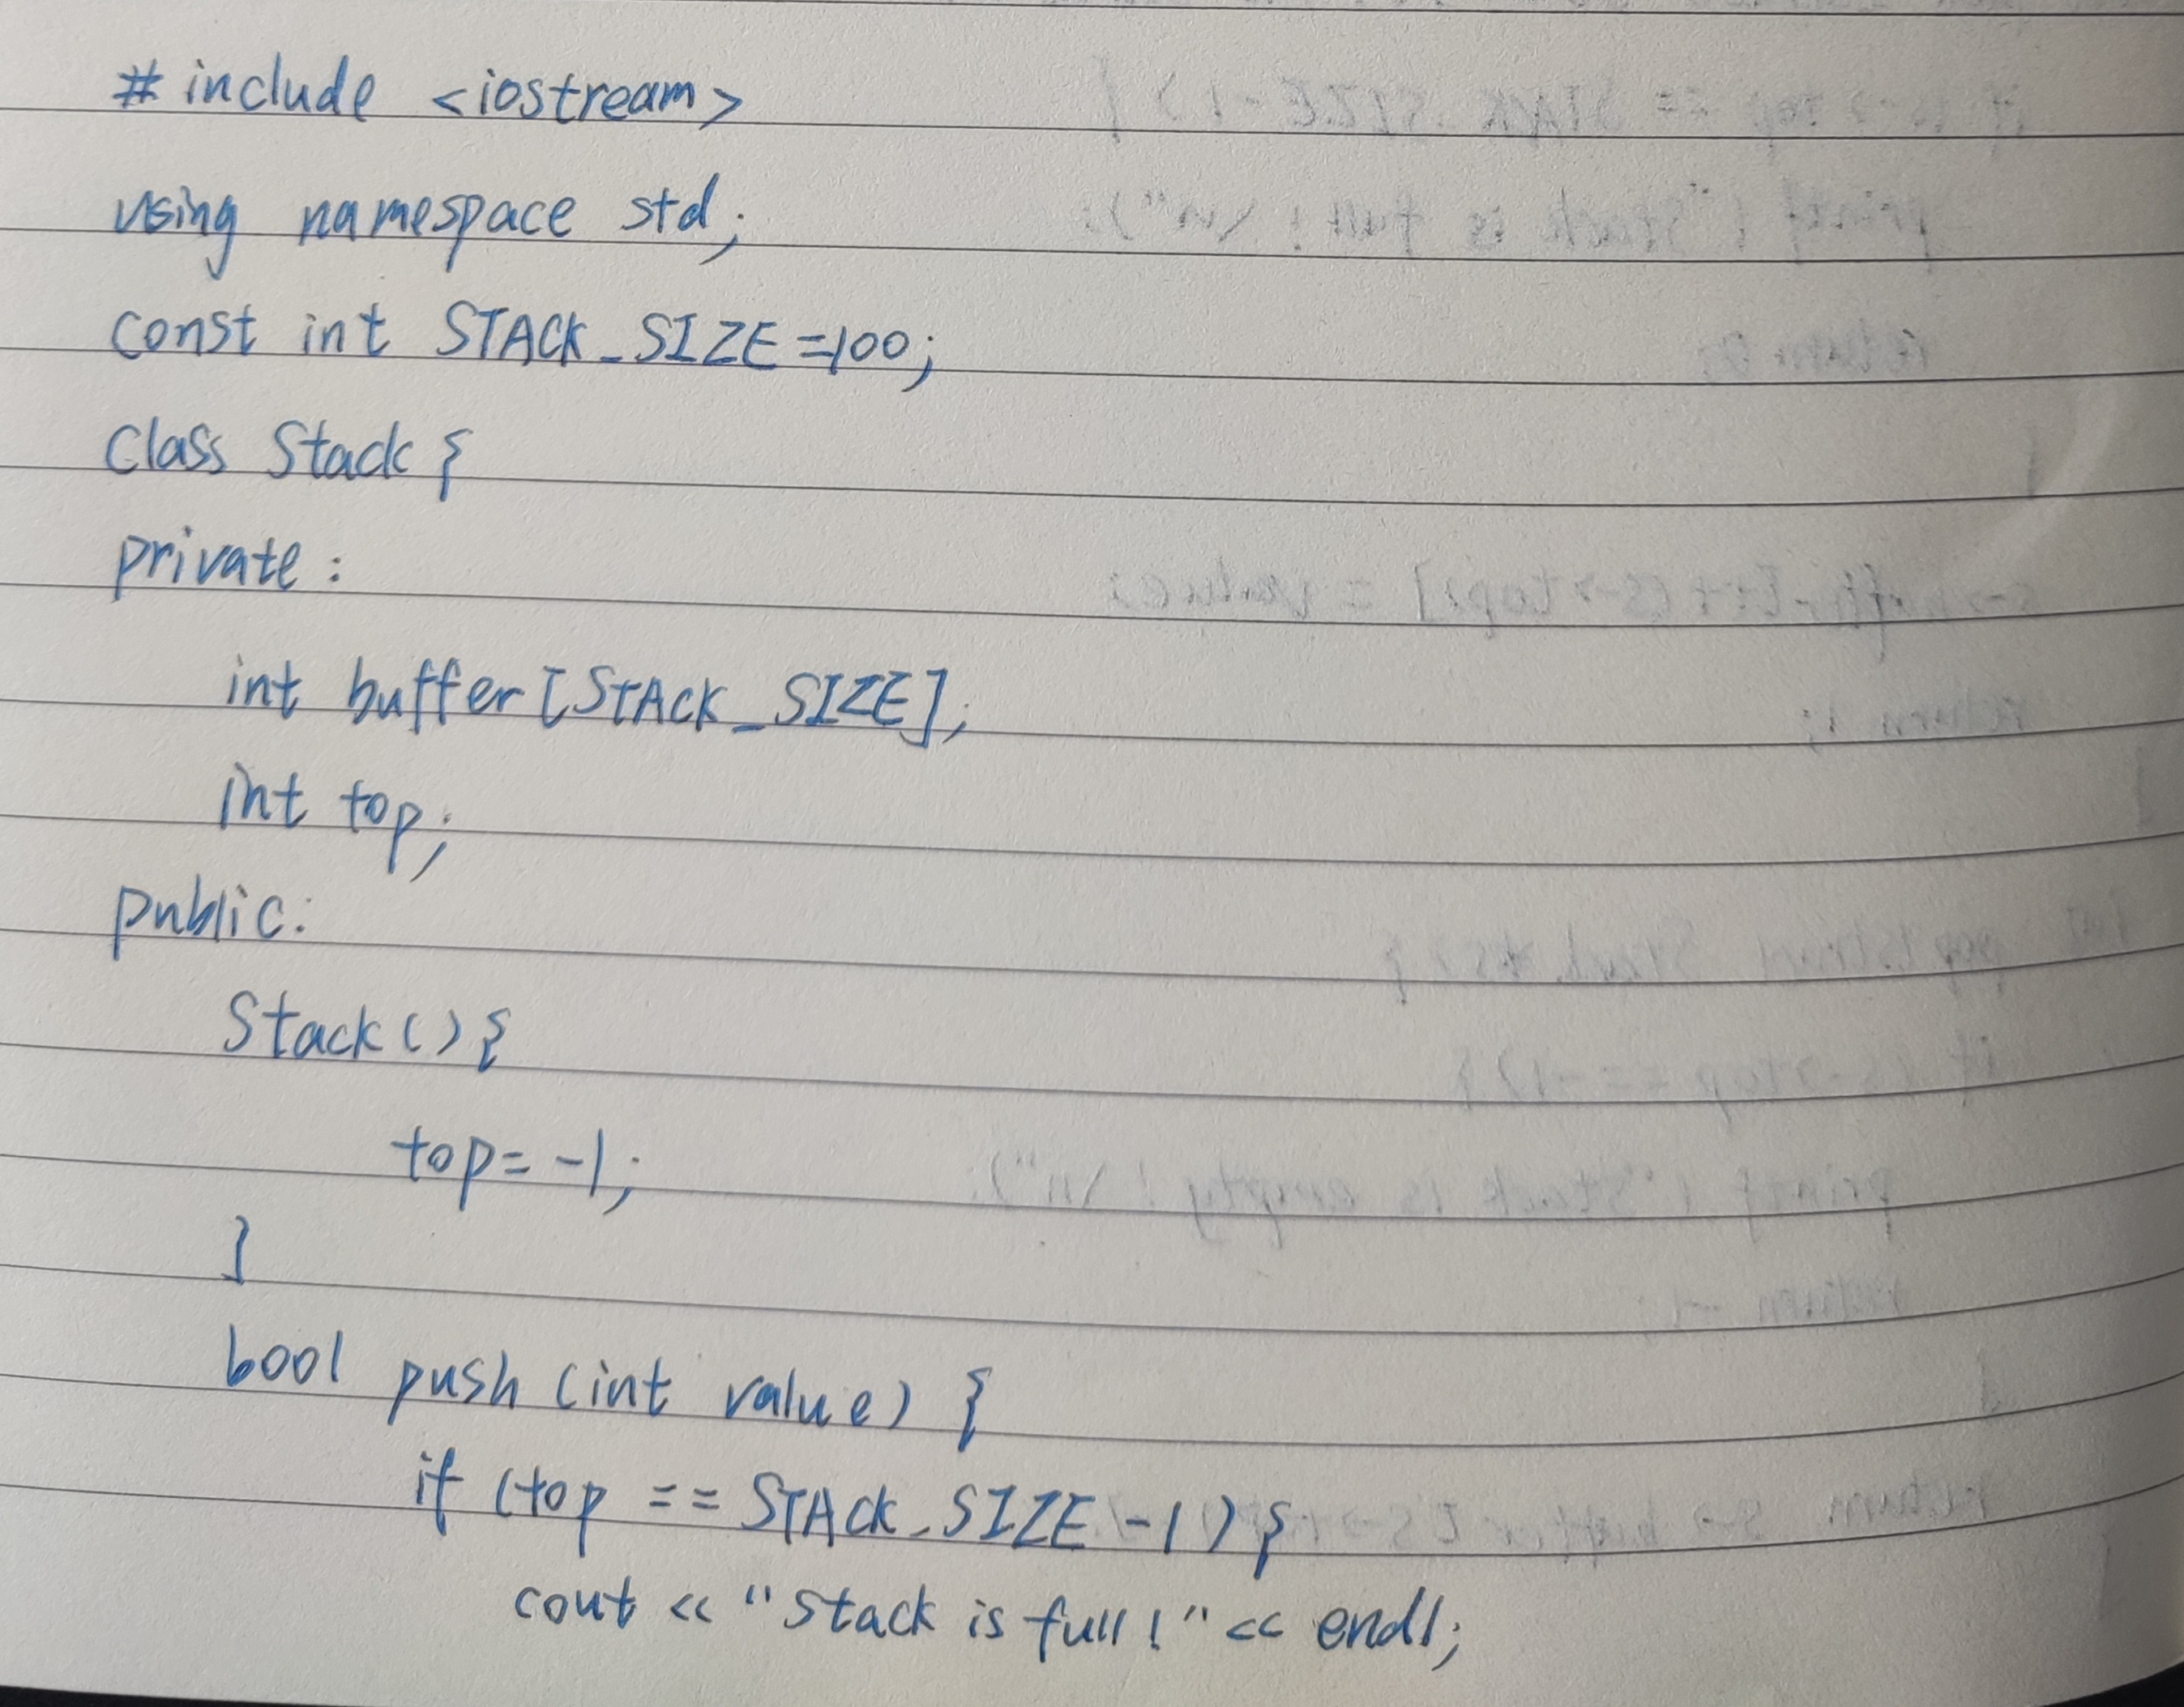 #include <iostream>
using namespace std;
const int STACK_SIZE=100;
class Stack {
private:
int buffer[STACK_SIZE];
int top;
public:
Stack(){
top=-1;
}
bool push(int value) {
if (top == STACK_SIZE-1){
cout << "Stack is full!" << endl;